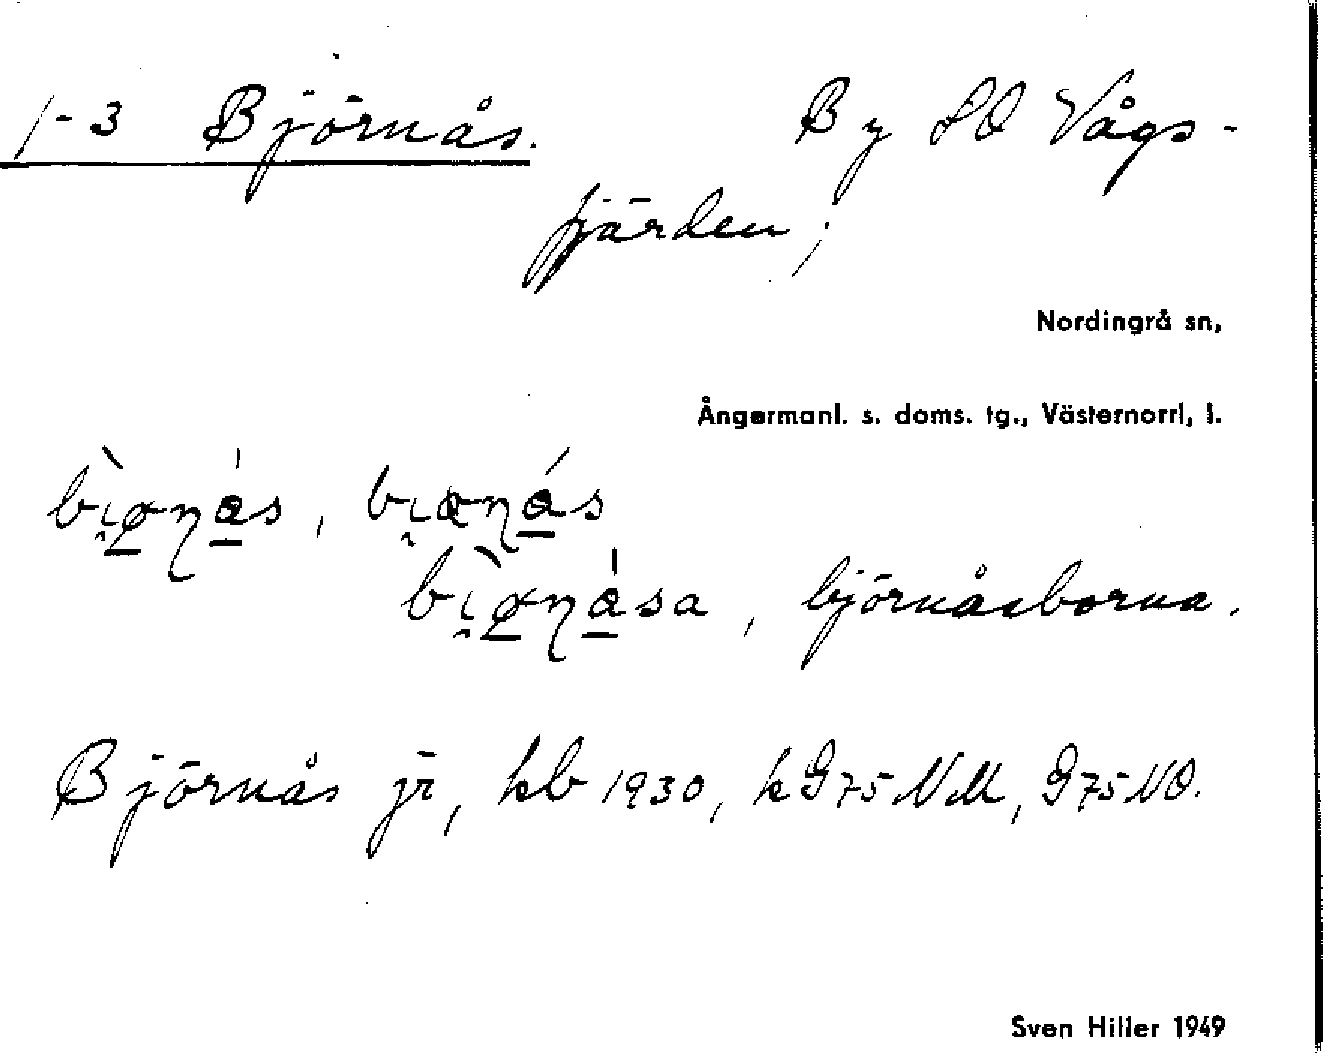 1-3 Björnås. By SO Vågs-
fjärden;
Nordingrå sn,
Ångermanl. s. doms. tg., Västernorrl, l.
björnåsborna.
Björnås jr, kb 1930, k G75 NM, G75 NO.
Sven Hiller 1949